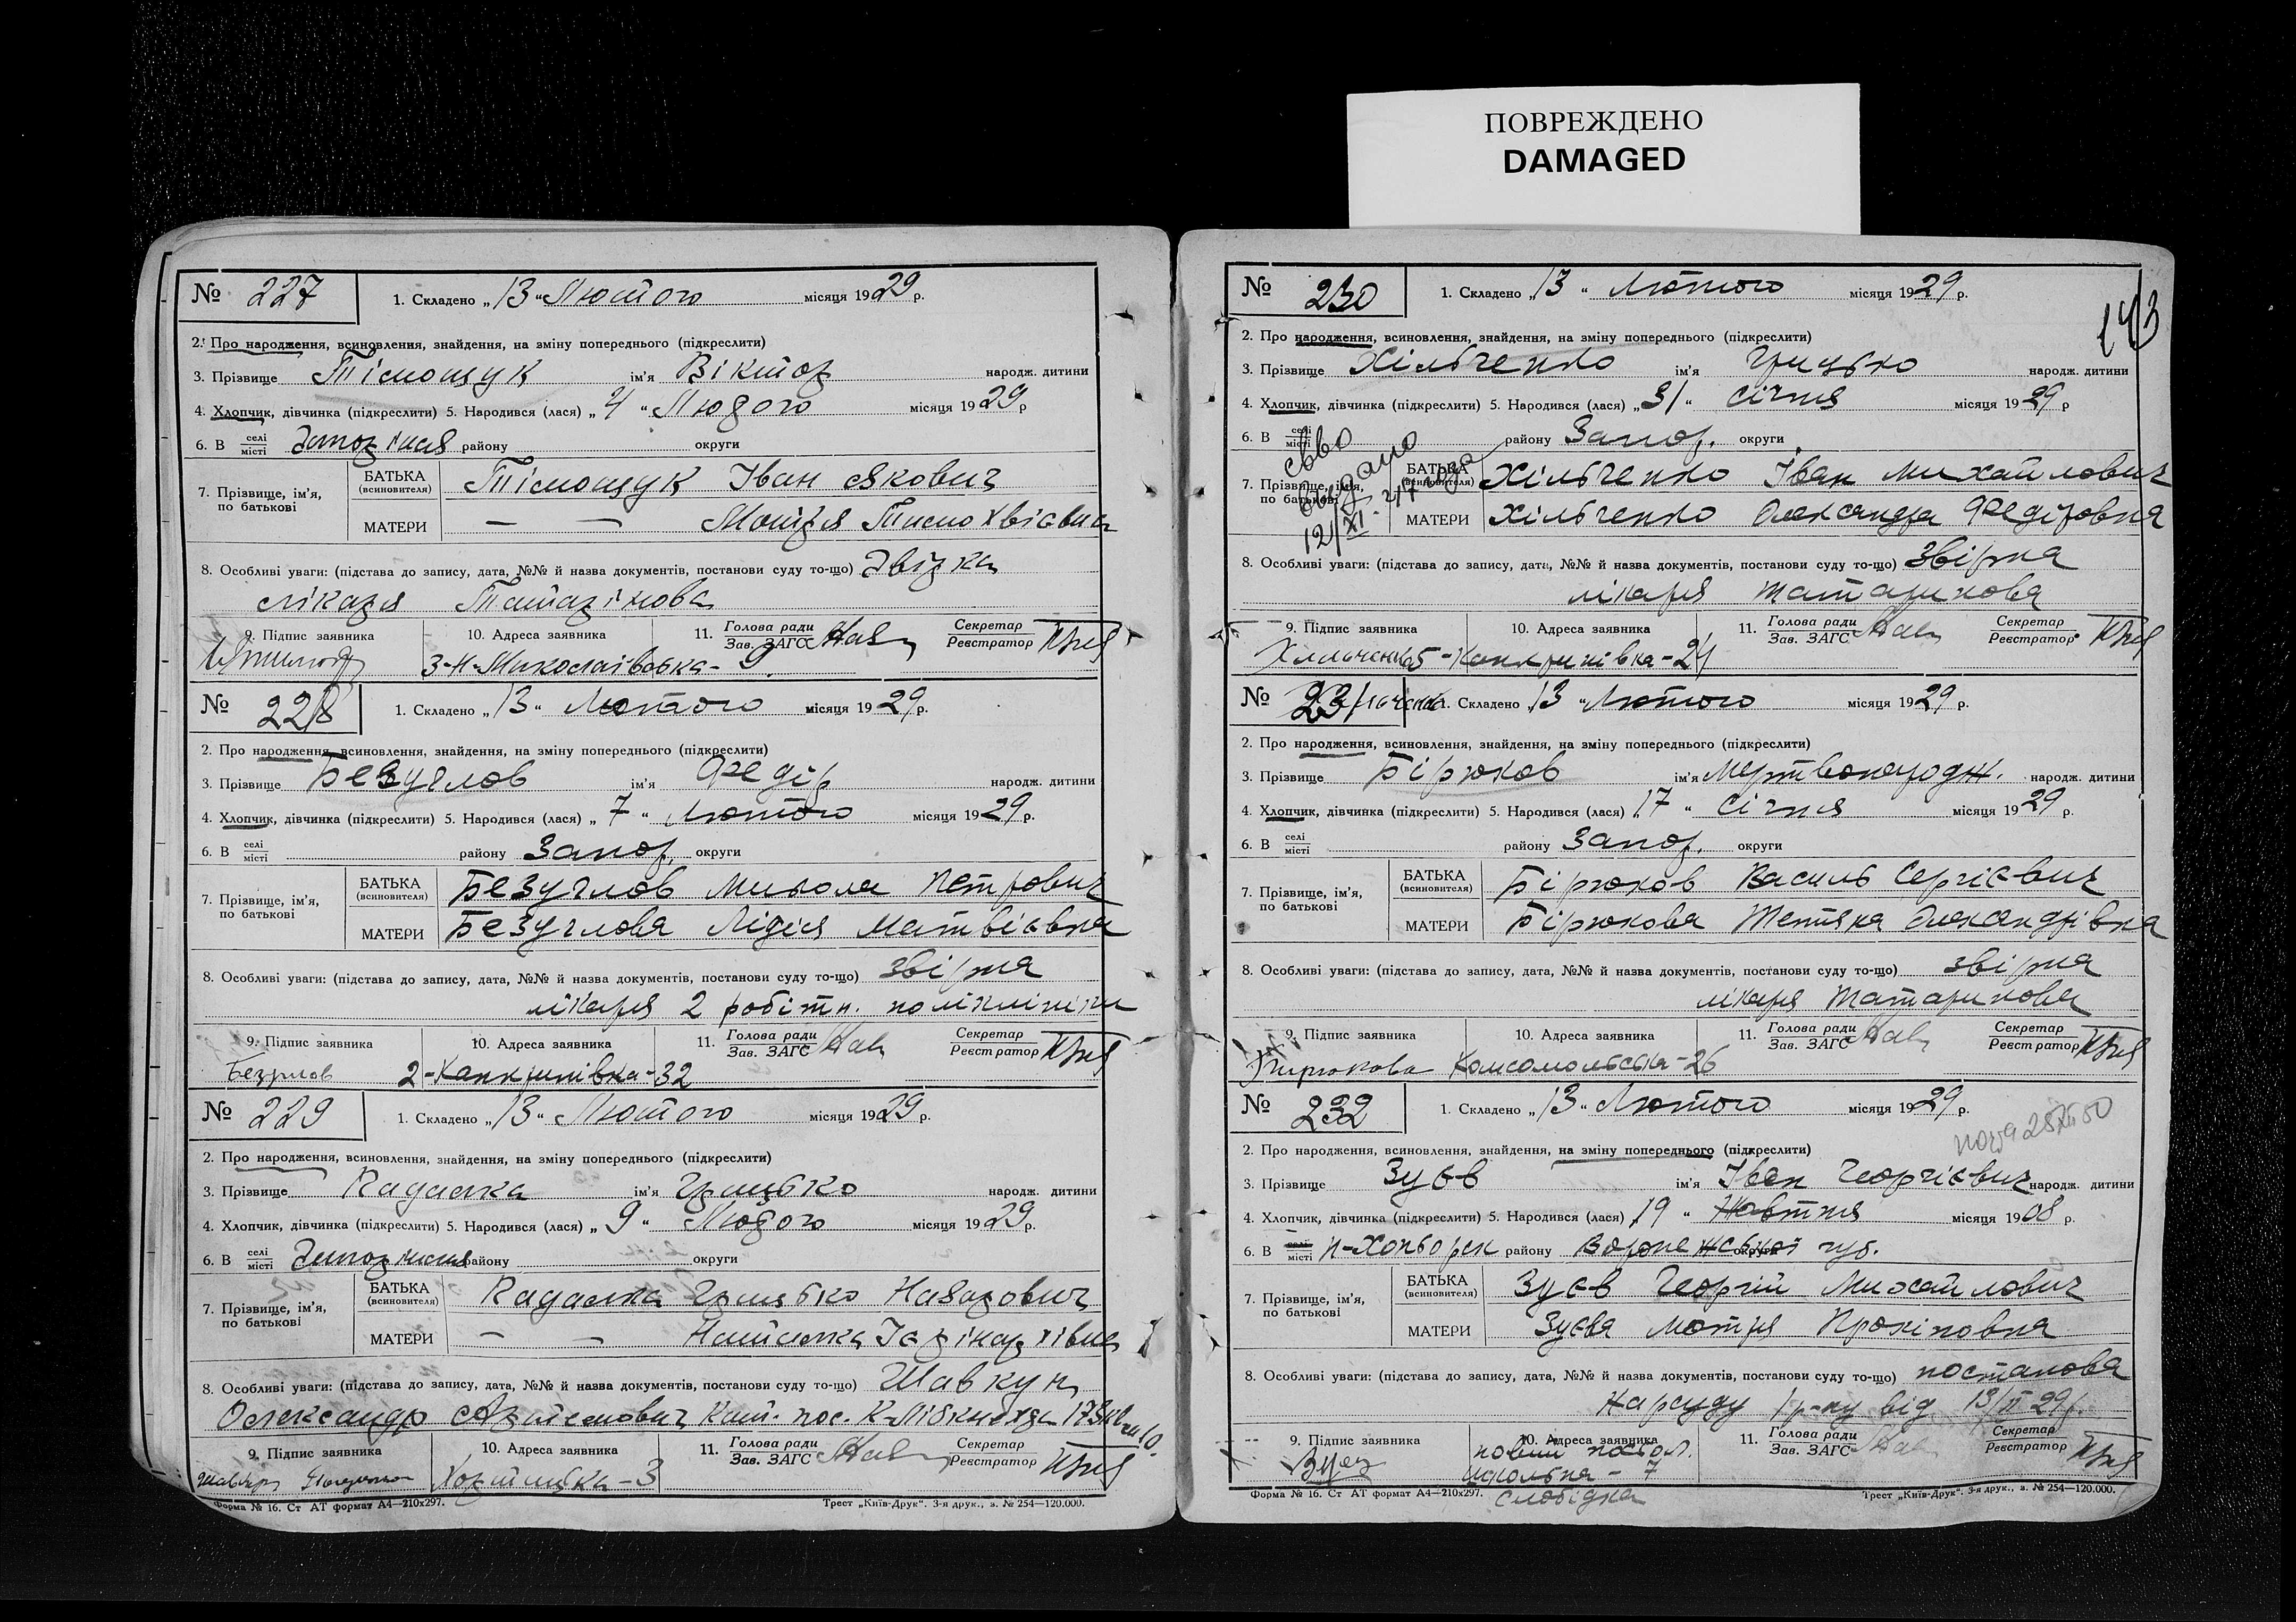 ПОВРЕЖДЕНО
DAMAGED
№ 227 1. Складено „13“ Лютого місяця 1929 р.
2. Про народження, всиновлення, знайдення, на зміну попереднього (підкреслити)
3. Прізвище Тімощук ім'я Віктор народж. дитини
4. Хлопчик, дівчинка (підкреслити) 5. Народився (лася) „4“ Лютого місяця 1929 р
6. В селі/місті Запоріжжя району округи
7. Прізвище, ім'я, по батькові БАТЬКА (всиновителя) Тімощук Іван Якович
МАТЕРИ — — Мотря
8. Особливі уваги: (підстава до запису, дата, №№ й назва документів, постанови суду то-що) Звірка
лікаря Татарінова
9. Підпис заявника 10. Адреса заявника 11. Голова ради/Зав. ЗАГС Секретар/Реєстратор
3-Н-Миколаівська-9.
№ 228 1. Складено „13“ Лютого місяця 1929 р.
2. Про народження, всиновлення, знайдення, на зміну попереднього (підкреслити)
3. Прізвище Безуглов ім'я Федір народж. дитини
4. Хлопчик, дівчинка (підкреслити) 5. Народився (лася) „7“ Лютого місяця 1929 р.
6. В селі/місті району Запор. округи
7. Прізвище, ім'я, по батькові БАТЬКА (всиновителя) Безуглов Микола Петрович
МАТЕРИ Безуглова Лідія Матвієвна
8. Особливі уваги: (підстава до запису, дата, №№ й назва документів, постанови суду то-що) звірка
лікаря 2 робітн. поліклініки
9. Підпис заявника 10. Адреса заявника 11. Голова ради/Зав. ЗАГС Секретар/Реєстратор
2-Канкринівка-32
№ 229 1. Складено „13“ Лютого місяця 1929 р.
2. Про народження, всиновлення, знайдення, на зміну попереднього (підкреслити)
3. Прізвище Кадалка ім'я Грицько народж. дитини
4. Хлопчик, дівчинка (підкреслити) 5. Народився (лася) „9“ Лютого місяця 1929 р.
6. В селі/місті Запоріжжя району округи
7. Прізвище, ім'я, по батькові БАТЬКА (всиновителя) Кадалка Грицько Назарович
МАТЕРИ — — Наталка
8. Особливі уваги: (підстава до запису, дата, №№ й назва документів, постанови суду то-що) Шавкун
Олександр
9. Підпис заявника 10. Адреса заявника 11. Голова ради/Зав. ЗАГС Секретар/Реєстратор
Хортицька-3
Форма № 16. Ст АТ формат А4—210х297. Трест „Київ-Друк“. 3-я друк., з. № 254—120.000.
143
№ 230 1. Складено „13“ Лютого місяця 1929 р.
2. Про народження, всиновлення, знайдення, на зміну попереднього (підкреслити)
3. Прізвище Хільченко ім'я Грицько народж. дитини
4. Хлопчик, дівчинка (підкреслити) 5. Народився (лася) „31“ січня місяця 1929 р
6. В селі/місті району Запор. округи
7. Прізвище, ім'я, по батькові БАТЬКА (всиновителя) Хільченко Іван Михайлович
МАТЕРИ Хільченко Олександра Федіровна
8. Особливі уваги: (підстава до запису, дата, №№ й назва документів, постанови суду то-що) звірка
лікаря Татаринова
9. Підпис заявника 10. Адреса заявника 11. Голова ради/Зав. ЗАГС Секретар/Реєстратор
5-Канкринівка-24
№ 231 1. Складено „13“ Лютого місяця 1929 р.
2. Про народження, всиновлення, знайдення, на зміну попереднього (підкреслити)
3. Прізвище Бірюков ім'я Мертвонародж. народж. дитини
4. Хлопчик, дівчинка (підкреслити) 5. Народився (лася) „17“ січня місяця 1929 р.
6. В селі/місті району Запор. округи
7. Прізвище, ім'я, по батькові БАТЬКА (всиновителя) Бірюков Василь Сергієвич
МАТЕРИ Бірюкова Тетяна Олександрівна
8. Особливі уваги: (підстава до запису, дата, №№ й назва документів, постанови суду то-що) звірка
лікаря Татаринова
9. Підпис заявника 10. Адреса заявника 11. Голова ради/Зав. ЗАГС Секретар/Реєстратор
Бирюкова Комсомольська-26
№ 232 1. Складено „13“ Лютого місяця 1929 р.
2. Про народження, всиновлення, знайдення, на зміну попереднього (підкреслити)
3. Прізвище Зуєв ім'я Іван Георгієвич народж. дитини
4. Хлопчик, дівчинка (підкреслити) 5. Народився (лася) „19“ Жовтня місяця 1908 р.
6. В селі/місті Н-Хоперск району Воронежської округи губ.
7. Прізвище, ім'я, по батькові БАТЬКА (всиновителя) Зуєв Георгій Михайлович
МАТЕРИ Зуєва Мотря Прокіповна
8. Особливі уваги: (підстава до запису, дата, №№ й назва документів, постанови суду то-що) постанова
Нарсуду 1 р-ну від 13/II 29 р.
9. Підпис заявника 10. Адреса заявника 11. Голова ради/Зав. ЗАГС Секретар/Реєстратор
школьна - 7
слобідка
Форма № 16. Ст АТ формат А4—210х297. Трест „Київ-Друк“. 3-я друк., з. № 254—120.000.